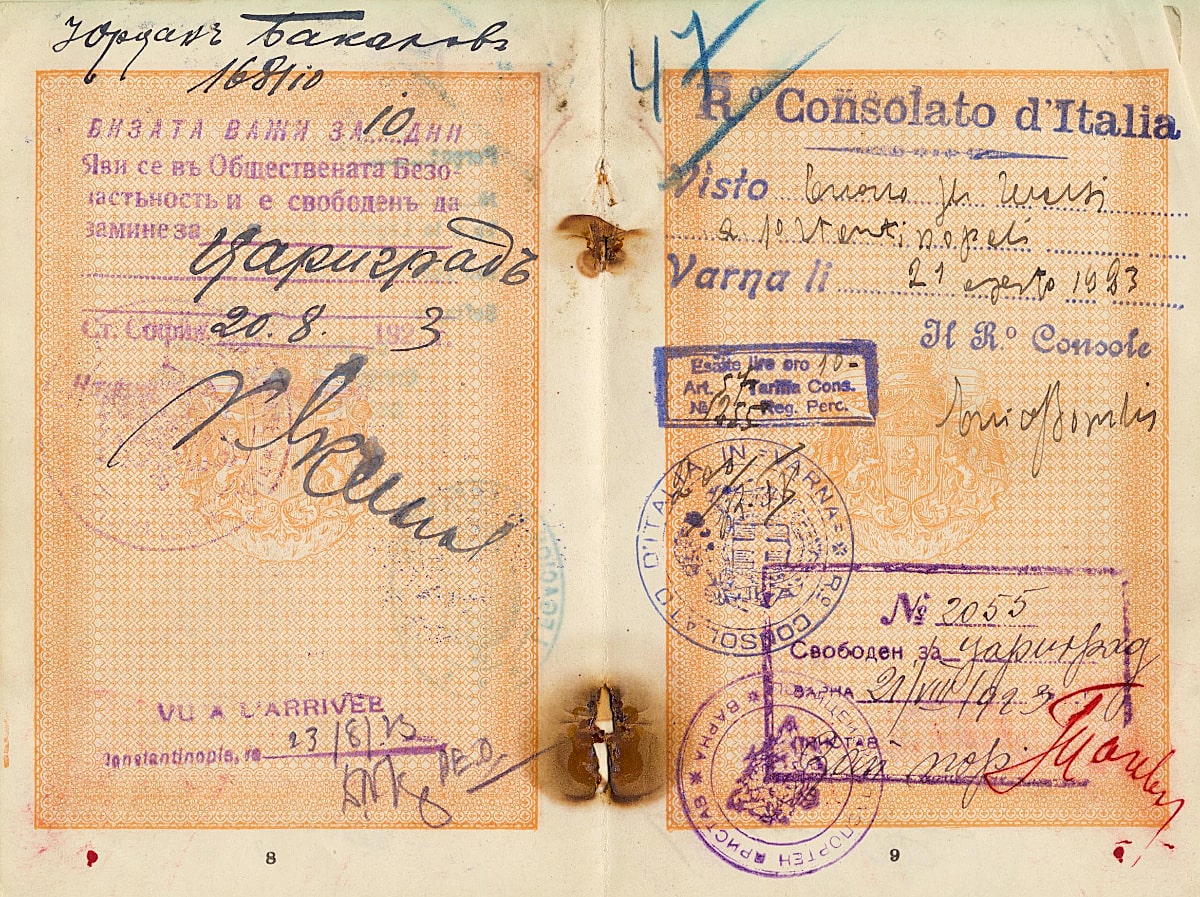 Юрданъ Бакаловъ
168/10
ВИЗАТА ВАЖИ ЗА 10 ДНИ
Яви се въ Обществената Безо-
пастьность и е свободенъ да
замине за
Цариградъ
Ст. София. 20. 8. 1923.
VU A L'ARRIVÉE
Constantinople, le 23/8/23
47
R.º Consolato d'Italia
Visto buono per
a Costantinopoli
Varna li 21 agosto 1923
Il R.º Console
Esatte lire oro 10-
Art. 54 Tariffa Cons.
№ 1255 Reg. Perc.
Rº CONSOLATO D'ITALIA IN VARNA
№ 2055
Свободен за Цариград
ВАРНА 21/VIII/1923
ПРИСТАВ
ВАРНА
8
9